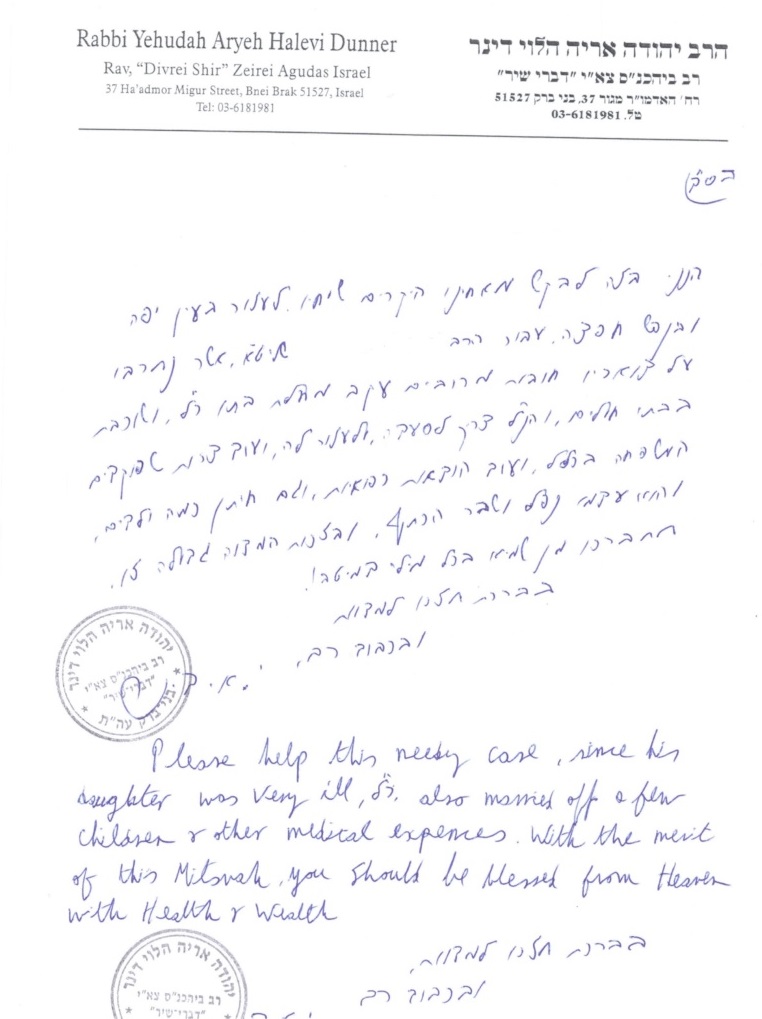 Rabbi Yehudah Aryeh Halevi Dunner
Rav, "Divrei Shir" Zeirei Agudas Israel
37 Ha'admor Migur Street, Bnei Brak 51527, Israel
Tel: 03-6181981
הרב יהודה אריה הלוי דינר
רב ביהכנ"ס צא"י "דברי שיר"
רח' האדמו"ר מגור 37, בני ברק 51527
טל. 03-6181981
בס"ד
הנני בזה לבקש מאחינו היקרים שיחיו לעזור בעין יפה
ובנפש חפצה, עבור הרב שליט"א, אשר נתרבו
על צואריו חובות מרובים עקב מחלת בתו ר"ל, ושוכבת
בבתי חולים, והנ"ל צריך לסעדה, ולעזור לה, ועוד צרות שפוקדים
המשפחה בכלל, ועוד הוצאות רפואיות, וגם חיתן כמה ילדים,
והוא עצמו נפל ושבר ובזכות המצוה גדולה זו,
תתברכו מן שמיא בכל מילי דמיטב!
בברכת חזכו למצוות
ובכבוד רב,
י.א. ד
יהודה אריה הלוי דינר
רב ביהכנ"ס צא"י
"דברי-שיר"
בני ברק עה"ת
Please help this needy case, since his
daughter was very ill, ר"ל. also married off a few
children & other medical expences. With the merit
of this Mitsvah, you should be blessed from Heaven
with Health & Wealth
בברכת חזכו למצוות,
ובכבוד רב
יהודה אריה הלוי דינר
רב ביהכנ"ס צא"י
"דברי-שיר"